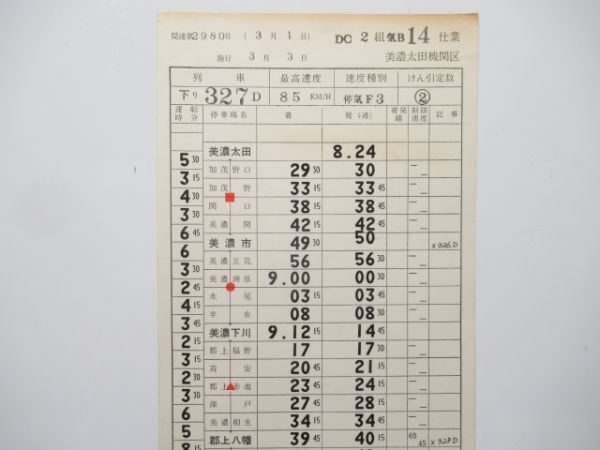 関達第2980号 (3月1日) DC 2組気B14仕業
施行 3月3日 美濃太田機関区
列車 最高速度 速度種別 けん引定数
下り 327D 85 KM/H 停気F3 ②
運転時分 停車場名 着 発(通) 着発線 制限速度 記事
美濃太田 8.24
5 30 加茂野口 29 30 30
3 30 加茂野 33 15 33 45
4 30 関口 38 15 38 45
3 30 美濃関 42 15 42 45
6 45 美濃市 49 30 50 X326D
6 美濃立花 56 56 30
3 30 美濃洲原 9.00 00 30
2 45 木尾 03 15 03 45
4 15 半在 08 08 30
3 45 美濃下川 9.12 15 14 45
2 15 郡上福野 17 17 30
3 15 苅安 20 45 21 15
2 30 郡上赤池 23 45 24 15
3 30 深戸 27 45 28 15
6 美濃相生 34 15 34 45
5 郡上八幡 39 45 40 15 65 45 X328D
8 15